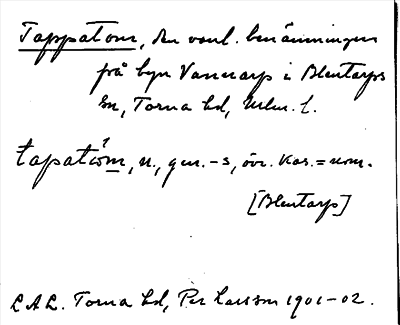 Tappatom, den vanl. benämningen
på byn Vanerarp i Blentarps
sn, Torna hd, Mlm. l.
tapatóm, n., gen. -s, övr. kas. = nom.
[Blentarp]
L.A.L. Torna hd, Per Larsson 1901-02.